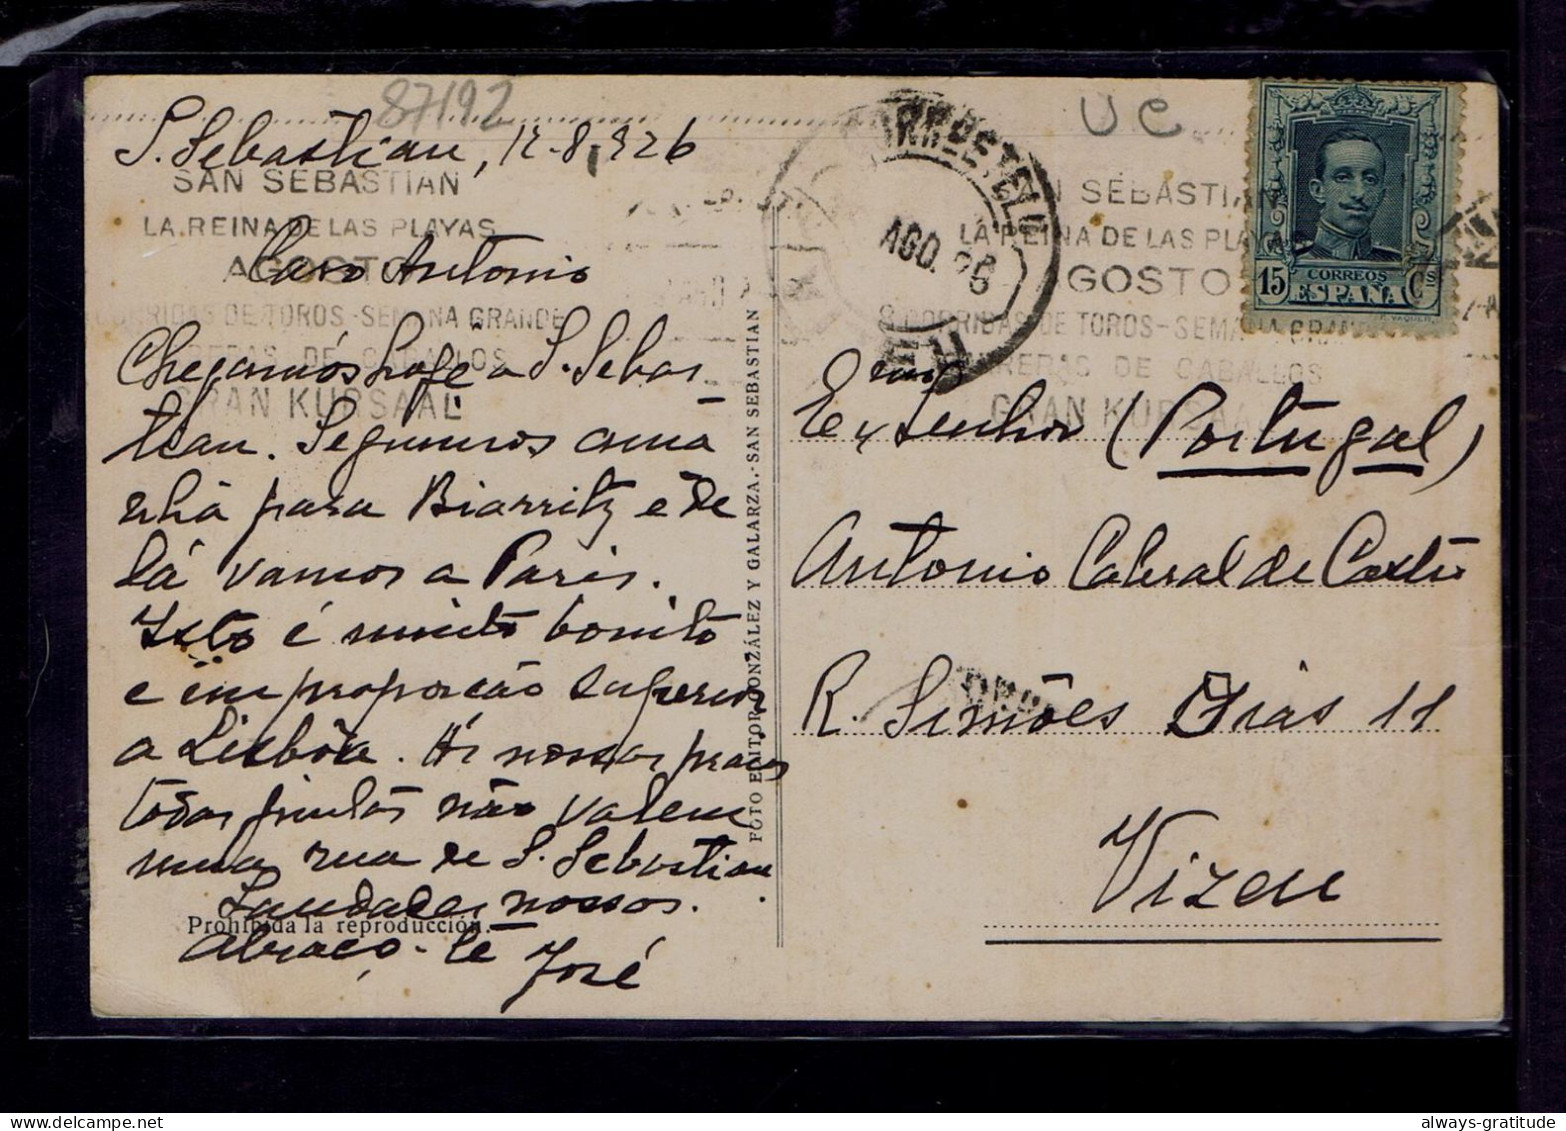 87192
S. Sebastian, 12-8-926
SAN SEBASTIAN
LA REINA DE LAS PLAYAS
AGOSTO
CORRIDAS DE TOROS-SEMANA GRANDE
CARRERAS DE CABALLOS
GRAN KURSAAL
Caro Antonio
Chegamos hoje a S. Sebas
tian. Seguimos ama
nhã para Biarritz e de
lá vamos a Paris.
Isto é muito bonito
e em proporção superior
a Lisbôa. As nossas praias
todas juntas não valem
uma rua de S. Sebastian.
Saudades nossas.
Prohibida la reproducción.
Abraço-te
José
FOTO EDITOR GONZÁLEZ Y GALARZA.-SAN SEBASTIAN
AGO. 26
UC
SAN SEBASTIAN
LA REINA DE LAS PLAYAS
AGOSTO
8 CORRIDAS DE TOROS-SEMANA GRAN
CARRERAS DE CABALLOS
GRAN KURSAAL
15 CORREOS Cs
ESPAÑA
Exmo Senhor (Portugal)
Antonio Cabral de Castro
R. Simões Dias 11
Vizeu
always-gratitude